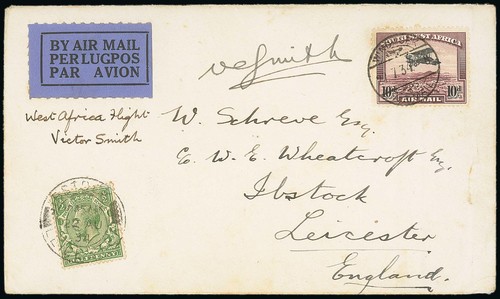 BY AIR MAIL
PER LUGPOS
PAR AVION
VSmith
SOUTH WEST AFRICA
10d 10d
AIR MAIL
West Africa Flight
Victor Smith
W. Schreve Esq.
C. W. E. Wheatcroft Esq.
Ibstock
Leicester
England.